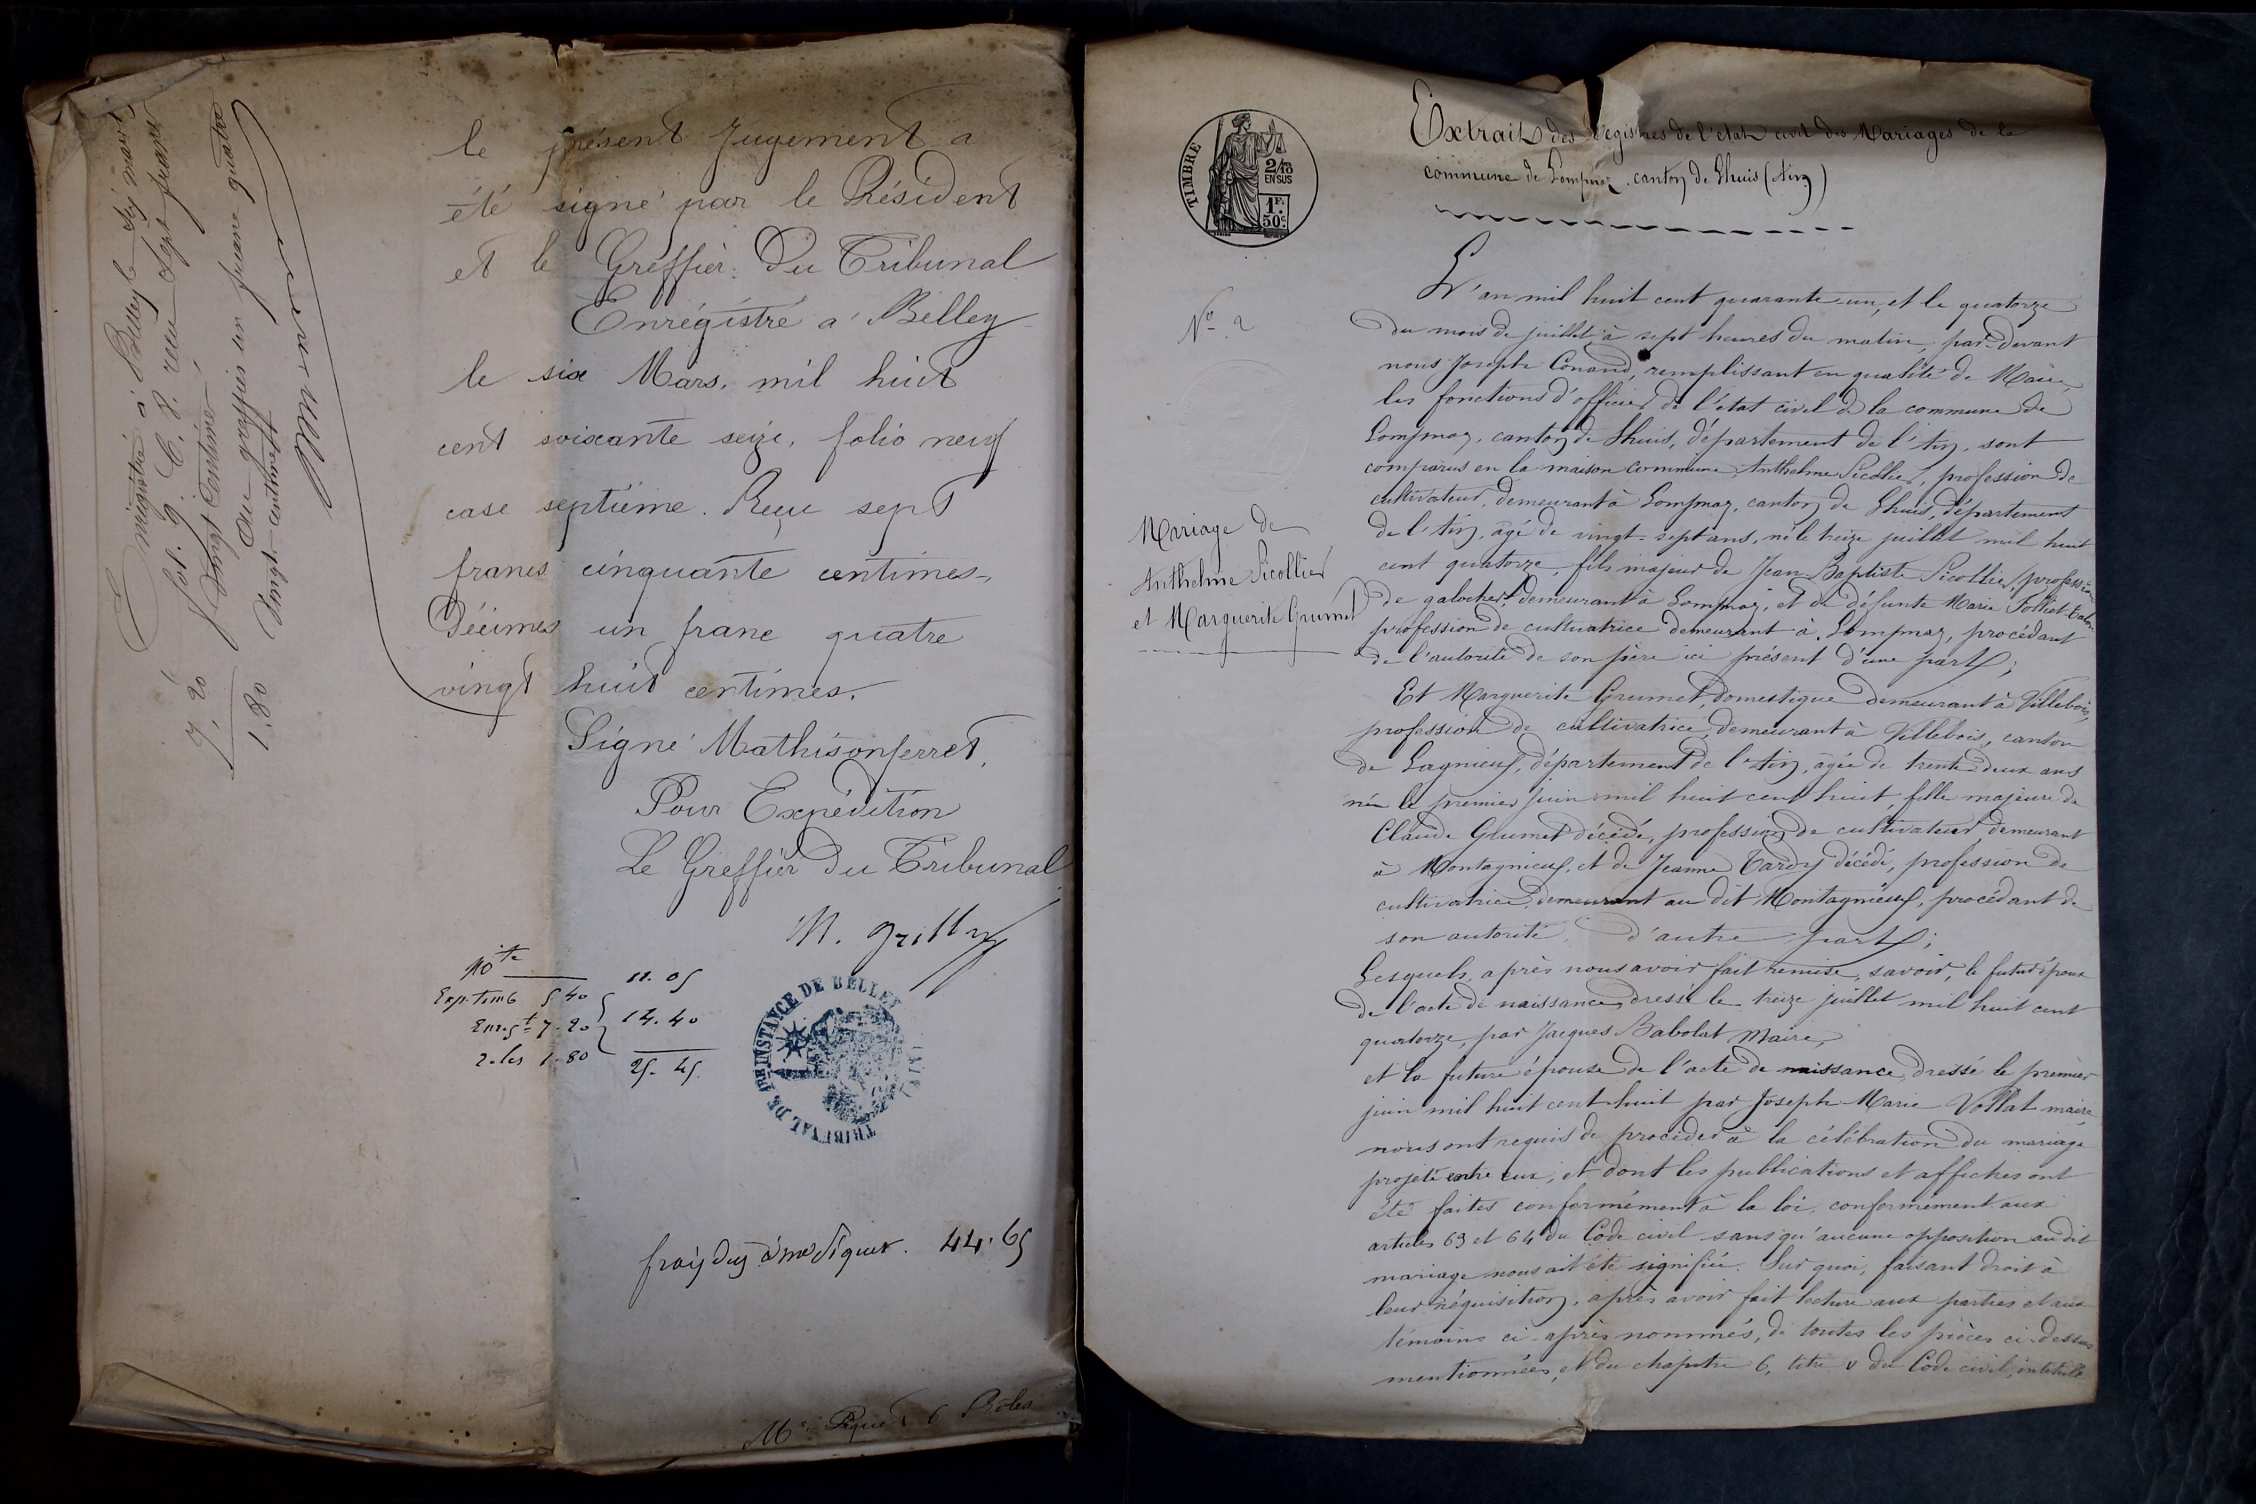 le présent Jugement a
été signé par le Président
et le Greffier du Tribunal
Enrégistré à Belley
le six Mars, mil huit
cent soixante seize, folio neuf
case septième. Reçu sept
francs cinquante centimes,
Décimes un franc quatre
vingt huit centimes.
Signé Mathisonferret.
Pour Expédition
Le Greffier du Tribunal
M. Grilly
11.05
Exp. timb 5 40
14.40
Enregt 7.20
1.80
25.45
TRIBUNAL DE 1RE INSTANCE DE BELLEY (AIN)
frais dus à me Piquet. 44.65
Me Piquet 6 Rôles
Enregistré à Belley le six mars
fol. 9. C. 8. reçu sept francs
vingt centimes
au greffier un franc quatre
vingt centimes
7,20
1.80
TIMBRE
2/10
EN SUS
1F.
50c.
Extrait des Registres de l'état civil des Mariages de la
commune de Lompnaz. canton de Lhuis (Ain)
No 2
Mariage de
Anthelme Sicollier
et Marguerite Grumet
L'an mil huit cent quarante-un, et le quatorze
du mois de juillet à sept heures du matin, par devant
nous Joseph Conand, remplissant en qualité de Maire
les fonctions d'officier de l'état civil de la commune de
Lompnaz, canton de Lhuis, département de l'Ain, sont
comparus en la maison commune, Anthelme Sicollier, profession de
cultivateur, demeurant à Lompnaz, canton de Lhuis, département
de l'Ain, âgé de vingt-sept ans, né le treize juillet mil huit
cent quatorze, fils majeur de Jean-Baptiste Sicollier, profession
de galocher, demeurant à Lompnaz, et de défunte Marie Folliet
profession de cultivatrice demeurant à Lompnaz, procédant
de l'autorité de son père ici présent d'une part;
Et Marguerite Grumet, domestique demeurant à Villebois,
profession de cultivatrice, demeurant à Villebois, canton
de Lagnieu, département de l'Ain, âgée de trente-deux ans
née le premier juin mil huit cent huit, fille majeure de
Claude Grumet décédé, profession de cultivateur, demeurant
à Montagnieu, et de Jeanne Tardy décédé, profession de
cultivatrice, demeurant au dit Montagnieu, procédant de
son autorité, d'autre part;
Lesquels, après nous avoir fait remise, savoir, le futur époux
de l'acte de naissance, dressé le treize juillet mil huit cent
quatorze, par Jacques Babolat Maire,
et la future épouse de l'acte de naissance, dressé le premier
juin mil huit cent huit par Joseph Marie Vollat maire
nous ont requis de procéder à la célébration du mariage
projeté entre eux, et dont les publications et affiches ont
été faites conformément à la loi, conformément aux
articles 63 et 64 du Code civil sans qu'aucune opposition au dit
mariage nous ait été signifiée. Sur quoi, faisant droit à
leur réquisition, après avoir fait lecture aux parties et aux
témoins ci-après nommés, de toutes les pièces ci-dessus
mentionnées, et du chapitre 6, titre v du Code civil, intitulé